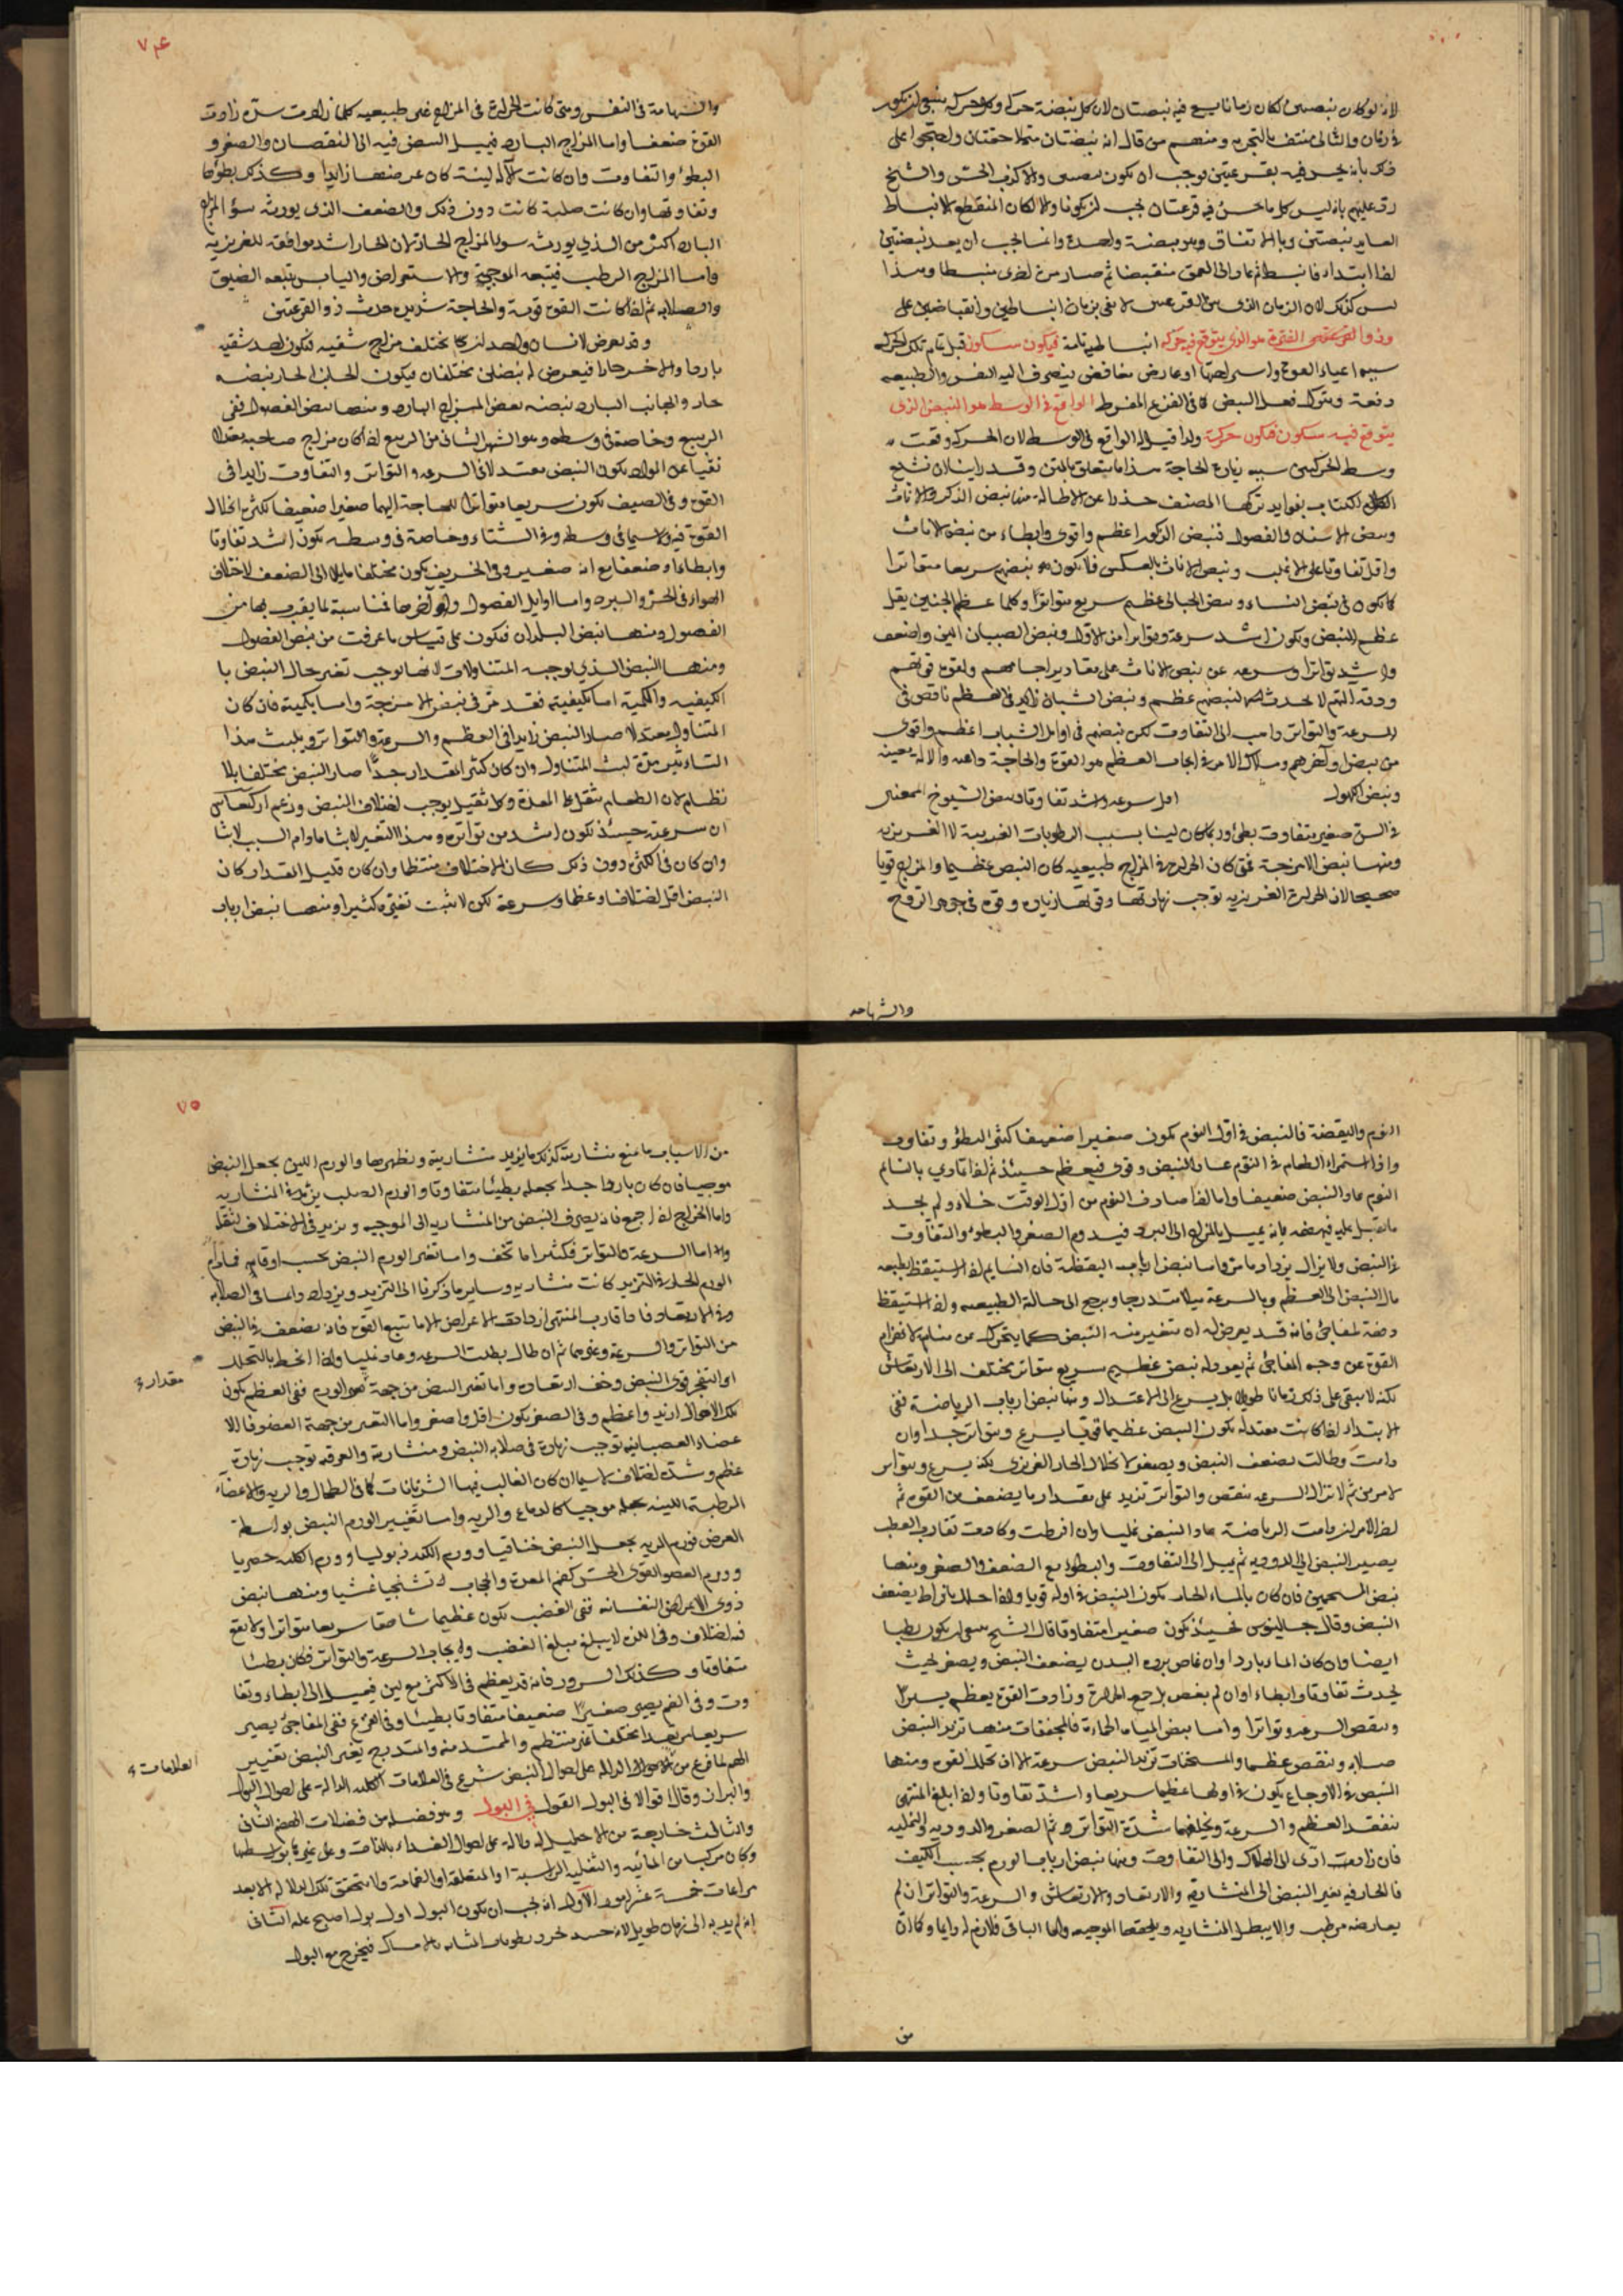 لانه لو كان نبضتين لكان زمانا يسع فيه نبضتان لان كل نبضة حركة وكل حركة ينبغي ان تكون
في زمان والثاني منتف بالتجربة ومنهم من قال انه نبضتان متلاحقتان واحتجوا على
ذلك بانه يحس فيه بقرعتين فوجب ان يكون نبضتين والا كذب الحس والشيخ
رد عليهم بانه ليس كل ما حس فيه قرعتان يجب ان يكونا والا لكان المنقطع الانبساط
العايد نبضتين وبالاتفاق هو نبضة واحدة وانما يجب ان يعد نبضتين
اذا ابتداء فانبسط ثم عاد الى العمق منقبضا ثم صار مرة اخرى منبسطا وهذا
ليس كذلك لان الزمان الذي بين القرعتين لا يفي بزمان انبساطين وانقباضين على
وذو الفترة هو الذي يتوقع فيه حركة انبساطية تامة فيكون سكون قبل تمام تلك الحركة
سببها اعياء القوة واستراحتها او عارض مغافص ينصرف اليه النفس والطبيعة
دفعة ويترك فعل النبض كما في الفزع المفرط الواقع في الوسط هو النبض الذي
يتوقع فيه سكون فيكون حركة ولذا قيل له الواقع في الوسط لان الحركة وقعت
وسط الحركتين سببه زيادة الحاجة هذا ما يتعلق بالمتن وقد راينا ان نشبع
الكلام الكتاب بفوايد تركها المصنف حذرا عن الاطالة منها نبض الذكر والاناث
ونبض الاسنان والفصول فنبض الذكور اعظم واقوى وابطاء من نبض الاناث
واقل تفاوتا على الاغلب ونبض الاناث بالعكس فلا يكون نبضهم سريعا متواترا
كما يكون في نبض النساء ونبض الحبالى عظيم سريع متواتر وكلما عظم الجنين يقل
عظم النبض ويكون اشد سرعة وتواترا من الاول ونبض الصبيان الين واضعف
واشد تواترا وسرعة عن نبض الاناث على مقادير اجسامهم ولقوة قوتهم
ورقة آلتهم لا يحدث لهم نبضهم عظم ونبض الشبان زايد في العظم ناقص في
السرعة والتواتر ذاهب الى التفاوت لكن نبضهم في اوايل الشباب اعظم واقوى
من نبض اواخرهم وملاك الامر في ايجاب العظم هو القوة والحاجة داعية والآلة معينة
ونبض الكهول اقل سرعة واشد تفاوتا ونبض الشيوخ الممعنين
في السن صغير متفاوت بطئ وربما كان لينا بسبب الرطوبات الغريبة لا الغريزية
ومنها نبض الامزجة فمتى كان الحرارة في المزاج طبيعية كان النبض عظيما والمزاج قويا
صحيحا لان الحرارة الغريزية توجب زيادتها وقوتها زيادة وقوة في جوهر الروح
والشهامة
٧٤
والشهامة في النفس ومتى كانت الحرارة في المزاج غير طبيعية كلما زادت شدة زادت
القوة ضعفا واما المزاج البارد فيميل النبض فيه الى النقصان والصغر و
البطؤ والتفاوت وان كانت الآلة لينة كان عرضها زايدا وكذلك بطؤها
وتفاوتها وان كانت صلبة كانت دون ذلك والضعف الذي يورثه سؤ المزاج
البارد اكثر من الذي يورثه سوء المزاج الحار لان الحار اشد موافقة للغريزية
واما المزاج الرطب فيتبعه الموجية والاستعراض واليابس يتبعه الضيق
والصلابة ثم اذا كانت القوة قوية والحاجة شديدة حدث ذو القرعتين
وقد يعرض لانسان واحد ان يختلف مزاج شقيه فيكون احد شقيه
باردا والاخر حارا فيعرض له نبضان مختلفان فيكون الجانب الحار نبضه
حار والجانب البارد نبضه نبض المزاج البارد ومنها نبض الفصول ففي
الربيع وخاصة في وسطه وهو الشهر الثاني من الربيع اذا كان مزاج صاحبه معتدلا
نقيا عن المواد يكون النبض معتدلا في السرعة والتواتر والتفاوت زايدا في
القوة وفي الصيف يكون سريعا متواترا للحاجة اليهما صغيرا ضعيفا لكثرة انحلال
القوة فيه لا سيما في وسطه وفي الشتاء وخاصة في وسطه يكون اشد تفاوتا
وابطاء وضعفا مع انه صغير وفي الخريف يكون مختلفا مايلا الى الضعف لاختلاف
الهواء في الحر والبرد واما اوايل الفصول واواخرها فمناسبة لما يقرب بها من
الفصول ومنها نبض البلدان فيكون على قياس ما عرفت من نبض الفصول
ومنها النبض الذي يوجبه المتناولات لانها يوجب تغير حال النبض با
الكيفية والكمية اما بكيفيته فقد مر في نبض الامزجة واما بكميته فان كان
المتناول معتدلا صار النبض زايدا في العظم والسرعة والتواتر ويلبث هذا
التاثير مدة لبث المتناول وان كان كثير المقدار جدًّا صار النبض مختلفا بلا
نظام لان الطعام يثقل على المعدة وكل ثقيل يوجب اختلاف النبض وزعم اركيغانس
ان سرعته حينئذ تكون اشد من تواتره وهذا التغير لابثا ما دام السبب لابثا
وان كان في الكثرة دون ذلك كان الاختلاف منتظما وان كان قليل المقدار كان
النبض اقل اختلافا وعظما وسرعة لكن لا يثبت تغيره كثيرا ومنها نبض ارباب
النوم واليقضة فالنبض في اول النوم يكون صغيرا ضعيفا كثير البطؤ وتفاوت
واذا استمراء الطعام في النوم عاد النبض وقوي فيعظم حينئذ ثم اذا تمادي بالنائم
النوم عاد النبض ضعيفا واما اذا صادف النوم من اول الوقت خلاء ولم يجد
ما يقبل عليه فيهضمه فانه يميل بالمزاج الى البرد فيدوم الصغر والبطوء والتفاوت
في النبض ولا يزال يزداد ما مر واما نبض ارباب اليقظة فان النايم اذا استيقظ بالطبيعة
مال النبض الى العظم وبالسرعة ميلا متدرجا ويرجع الى حالة الطبيعية واذا استيقظ
دفعة لمفاجئ فانه قد يعرض له ان يتغير منه النبض كما يتحرك من منامه لانهزام
القوة عن وجه المفاجئ ثم يعود له نبض عظيم سريع متواتر مختلف الى الارتعاش
لكنه لا يبقى على ذلك زمانا طويلا بل يسرع الى الاعتدال ومنها نبض ارباب الرياضة ففي
الابتداء اذا كانت معتدلة يكون النبض عظيما قويا يسرع ويتواتر جدا وان
دامت وطالت يضعف النبض ويصغر لانحلال الحار الغريزي لكنه يسرع ويتواتر
لامرين ثم لا تزال السرعة ينقص والتواتر تزيد على مقدار ما يضعف من القوة ثم
اخر الامر ان دامت الرياضة عاد النبض نمليا وان افرطت وكادت تقارب العطب
يصير النبض الى الدودية ثم يميل الى التفاوت والبطوء مع الضعف والصغر ومنها
نبض المستحمين فان كان بالماء الحار يكون النبض في اوله قويا واذا حلل بافراط يضعف
النبض وقال جالينوس فحينئذ يكون صغيرا متفاوتا قال الشيخ ينبغي ان يكون بطيا
ايضا وان كان الماء باردا وان غاص برده البدن يضعف النبض ويصغر بحيث
يحدث تفاوتا وابطاء وان لم يغص بل جمع الحرارة وزادت القوة يعظم يسيرا
وينقص السرعة وتواترا واما نبض المياه الحمائية فالمجففات منها تزيد النبض
صلابة وينقص عظما والمسخنات تزيد النبض سرعة الا ان يحلل القوة ومنها
النبض في الاوجاع يكون في اولها عظيما سريعا واشد تفاوتا واذا ابلغ المنتهى
نيفقد العظم والسرعة ويخلفها شدة التواتر ثم الصغر والدودية والنملية
فان زادت ادى الى الهلاك والى التفاوت ومنها نبض ارباب الورم بحسب الكيف
فالحار فيه يغير النبض الى المنشارية والارتعاد والارتعاش والسرعة والتواتر ان لم
يعارضه مرطب والا يبطل المنشارية ويلحقها الموجية واما الباقي فلازم له دايما وكما ان
من
٧٥
من الاسباب ما منع منشارية كذلك ما يزيد منشارية ويظهرها والورم اللين يجعل النبض
موجيا فان كان باردا جدا يجعله بطيئا متفاوتا والورم الصلب يزيد في المنشارية
واما الخراج اذا جمع فانه يصرف النبض من المنشارية الى الموجية ويزيد في الاختلاف لثقله
واما السرعة والتواتر فكثيرا ما تخف واما تغير الورم النبض بحسب اوقاته فما دام
الورم الحار في التزيد كانت منشارية وساير ما ذكرنا الى التزيد ويزداد دايما في الصلابة
وفي الارتعاد فاذا قارب المنتهى ازدادت الاعراض الا ما تتبع القوة فانه يضعف في النبض
من التواتر والسرعة وغيرهما ثم ان طال بطلت السرعة وعاد نمليا واذا انحط بالتحلل
او انفجر قوي النبض وخف ارتعاده واما تغير النبض من جهة مقدار الورم ففي العظم يكون
مقدار
تلك الاحوال ازيد واعظم وفي الصغر يكون اقل واصغر واما التغير من جهة العضو فالا
عضاء العصبانية توجب زيادة في صلابة النبض ومنشارية والعرقية توجب زيادة
عظم وشدة اختلاف لا سيما ان كان الغالب فيها الشريانات كما في الطحال والرية والاعضاء
الرطبة اللينة يجعله موجيا كالدماغ والرية واما تغيير الورم النبض بواسطة
العرض فورم الرية يجعل النبض خناقيا وورم الكبد ذبوليا وورم الكلية حصريا
وورم العضو القوي الحس كفم المعدة والحجاب تشنجيا غشيا ومنها نبض
ذوي الاعراض النفسانية ففي الغضب يكون عظيما شاهقا سريعا متواترا ولا يقع
فيه اختلاف وفي اللذة لا يبلغ مبلغ الغضب في ايجاب السرعة والتواتر فكان بطيئا
متفاوتا وكذلك السرور فانه قد يعظم في الاكثر مع لين فيميل الى ابطاء وتفا
وت وفي الغم يصير صغيرا ضعيفا متفاوتا بطيئا وفي الفزع ففي المفاجئ يصير
سريعا مرتعدا مختلفا غير منتظم والممتد منه والمتدرج يغير النبض تغيير
الهم لما فرغ من الاحوال الدالة على احوال النبض شرع في العلامات الكلية الدالة على احوال البول
العلامات
والبراز وقال القول في البول القول في البول وهو فضلة من فضلات الهضم الثاني
والثالث خارجة من الاحليل له دلالة على احوال الغذاء بالذات وعلى غيره بواسطتها
وكان مركبا من المائية والثقلية الراسبة او المتعلقة او الغمامة ولا يتحقق تلك الدلالة الا بعد
مراعات خمسة عشر امور الأول انه يجب ان يكون البول اول بول اصبح عليه الثاني
انه لم يدافع به الى زمان طويل لانه حينئذ طوبات المثانة بالامساك فيخرج مع البول